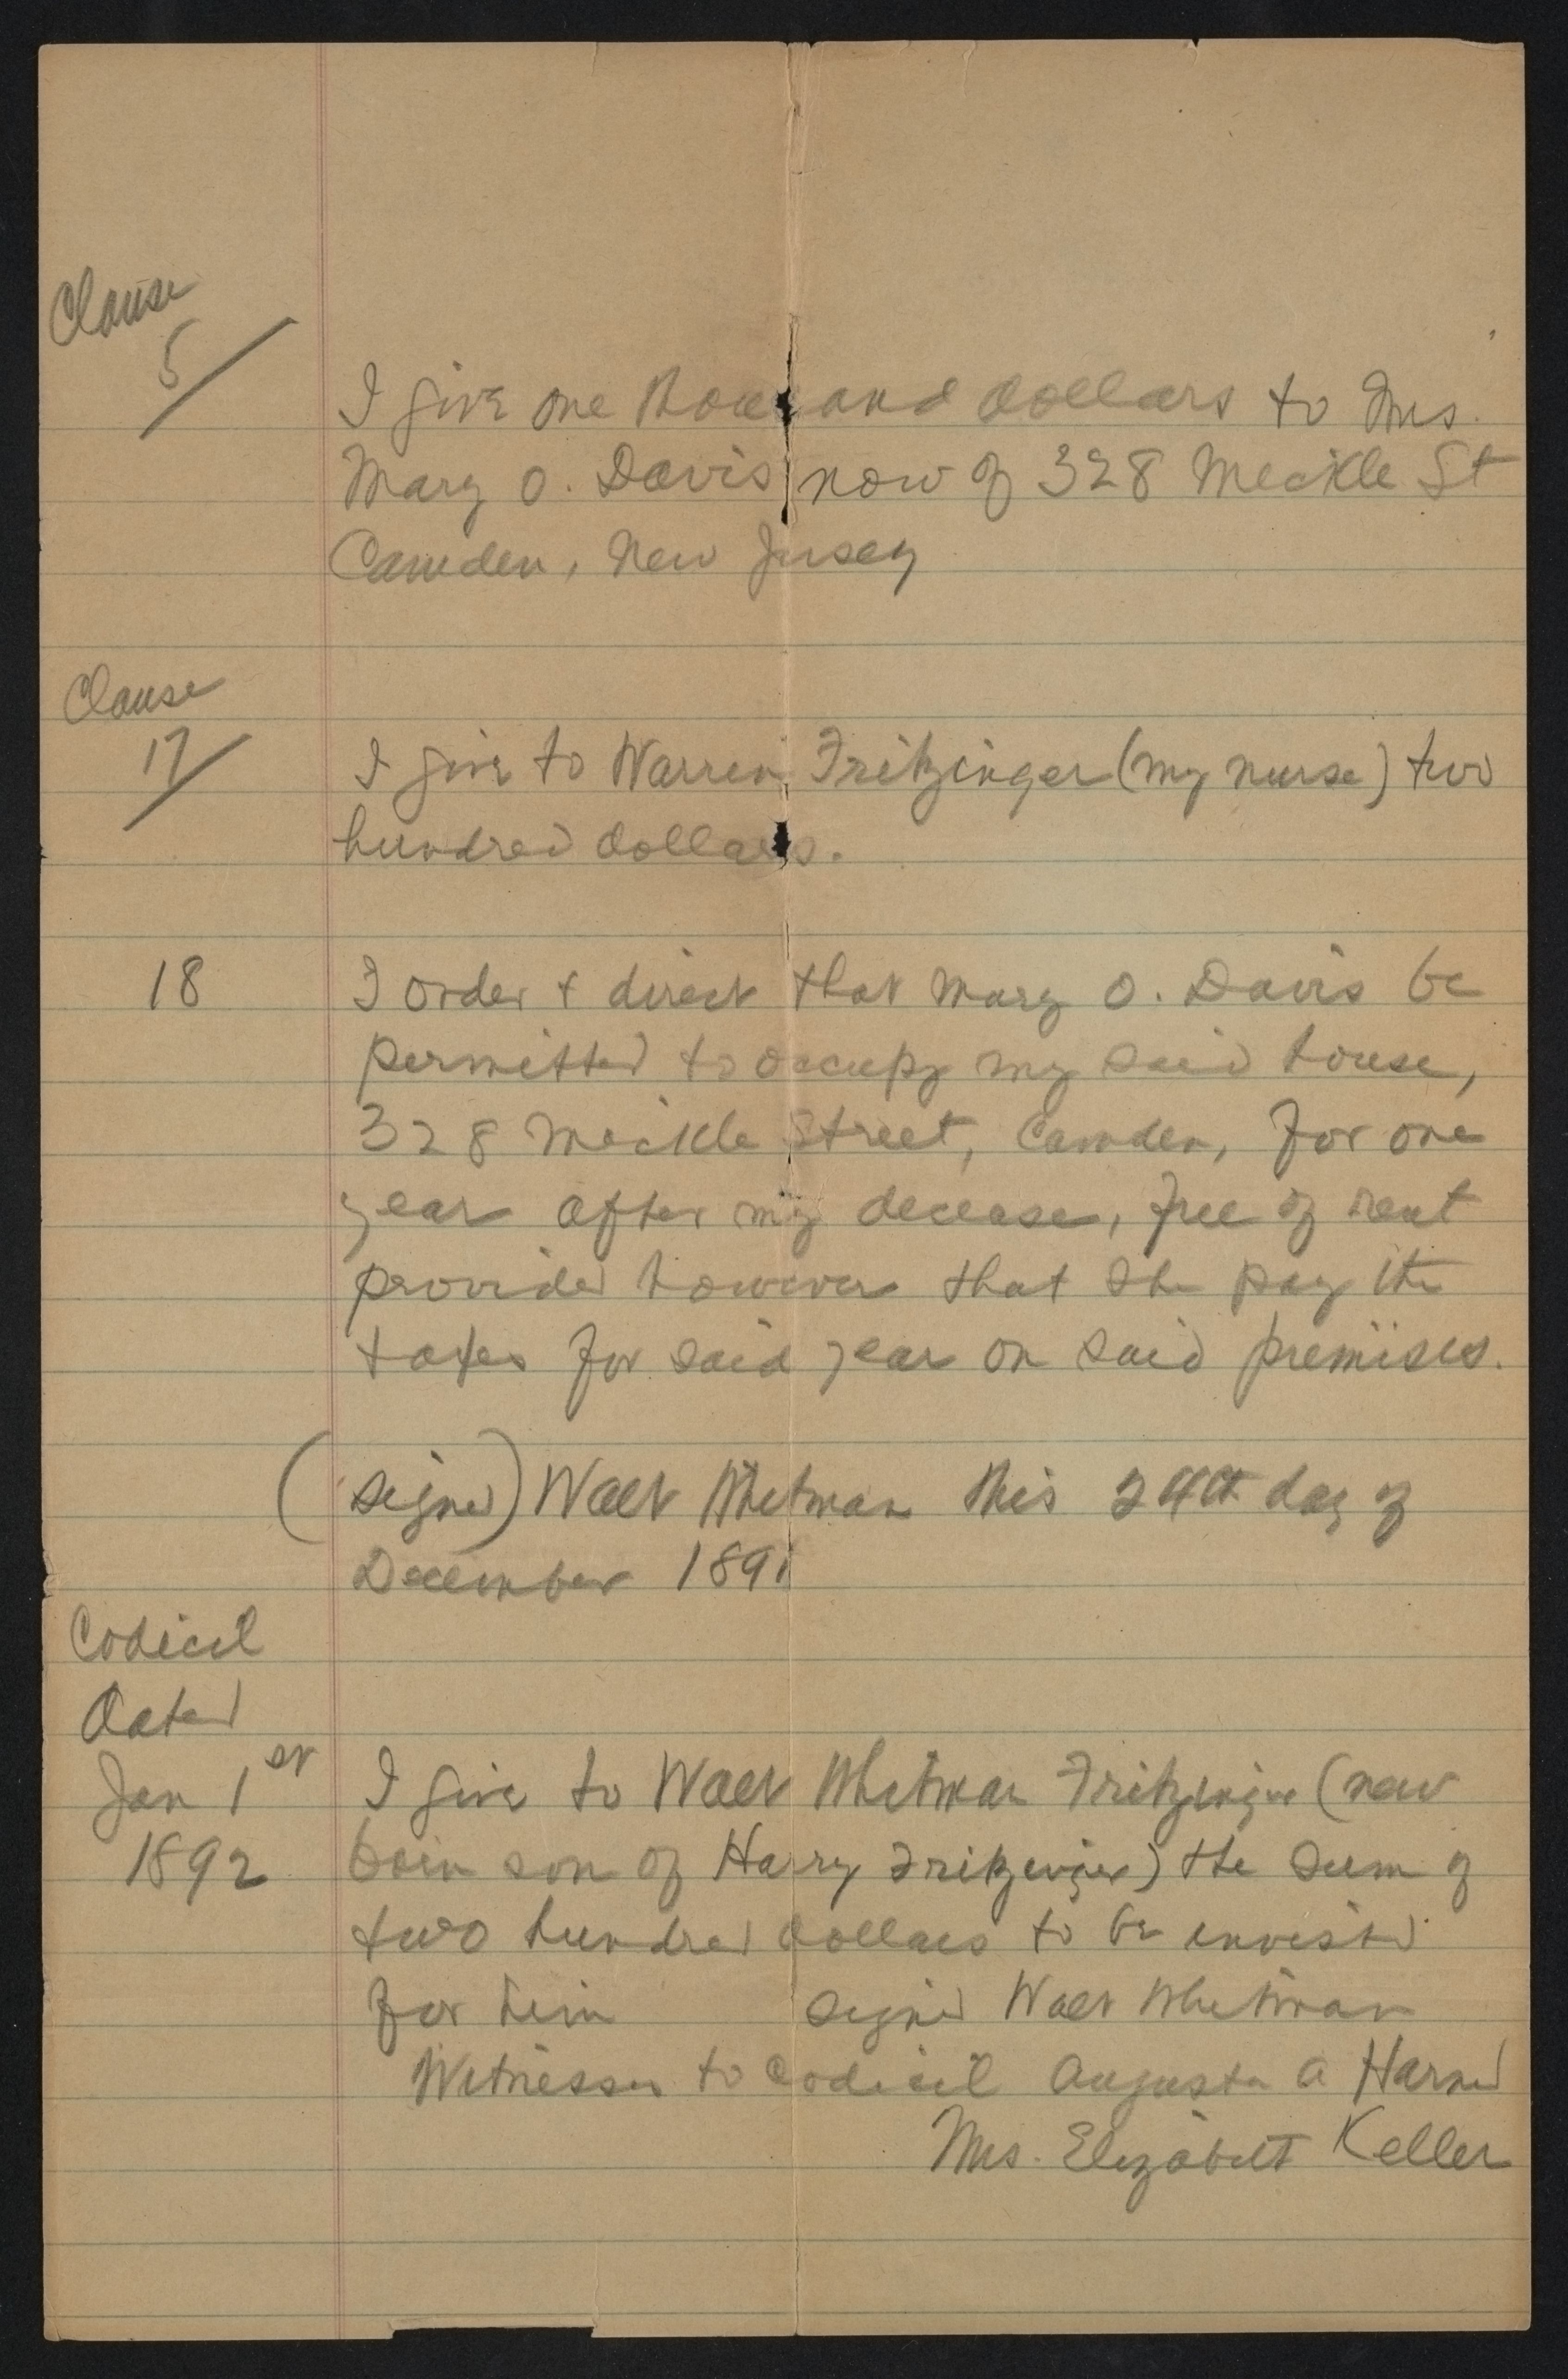 Clause
5
I give one thousand dollars to Mrs.
Mary O. Davis now of 328 Meckle St
Camden, New Jersey
Clause
17
I give to Warren Fritzinger (my nurse) two
hundred dollars.
18
I order & direct that Mary O. Davis be
permitted to occupy my said house,
328 Meckle Street, Camden, for one
year after my decease, free of rent
provided however that she pay the
taxes for said year on said premises.
(signed) Walt Whitman this 24th day of
December 1891
Codicil
Dated
Jan 1st
1892
I give to Walt Whitman Fritzinger (new
born son of Harry Fritzinger) the sum of
two hundred dollars to be invested
for him signed Walt Whitman
Witnesses to Codicil Augusta A Harned
Mrs. Elizabeth Keller